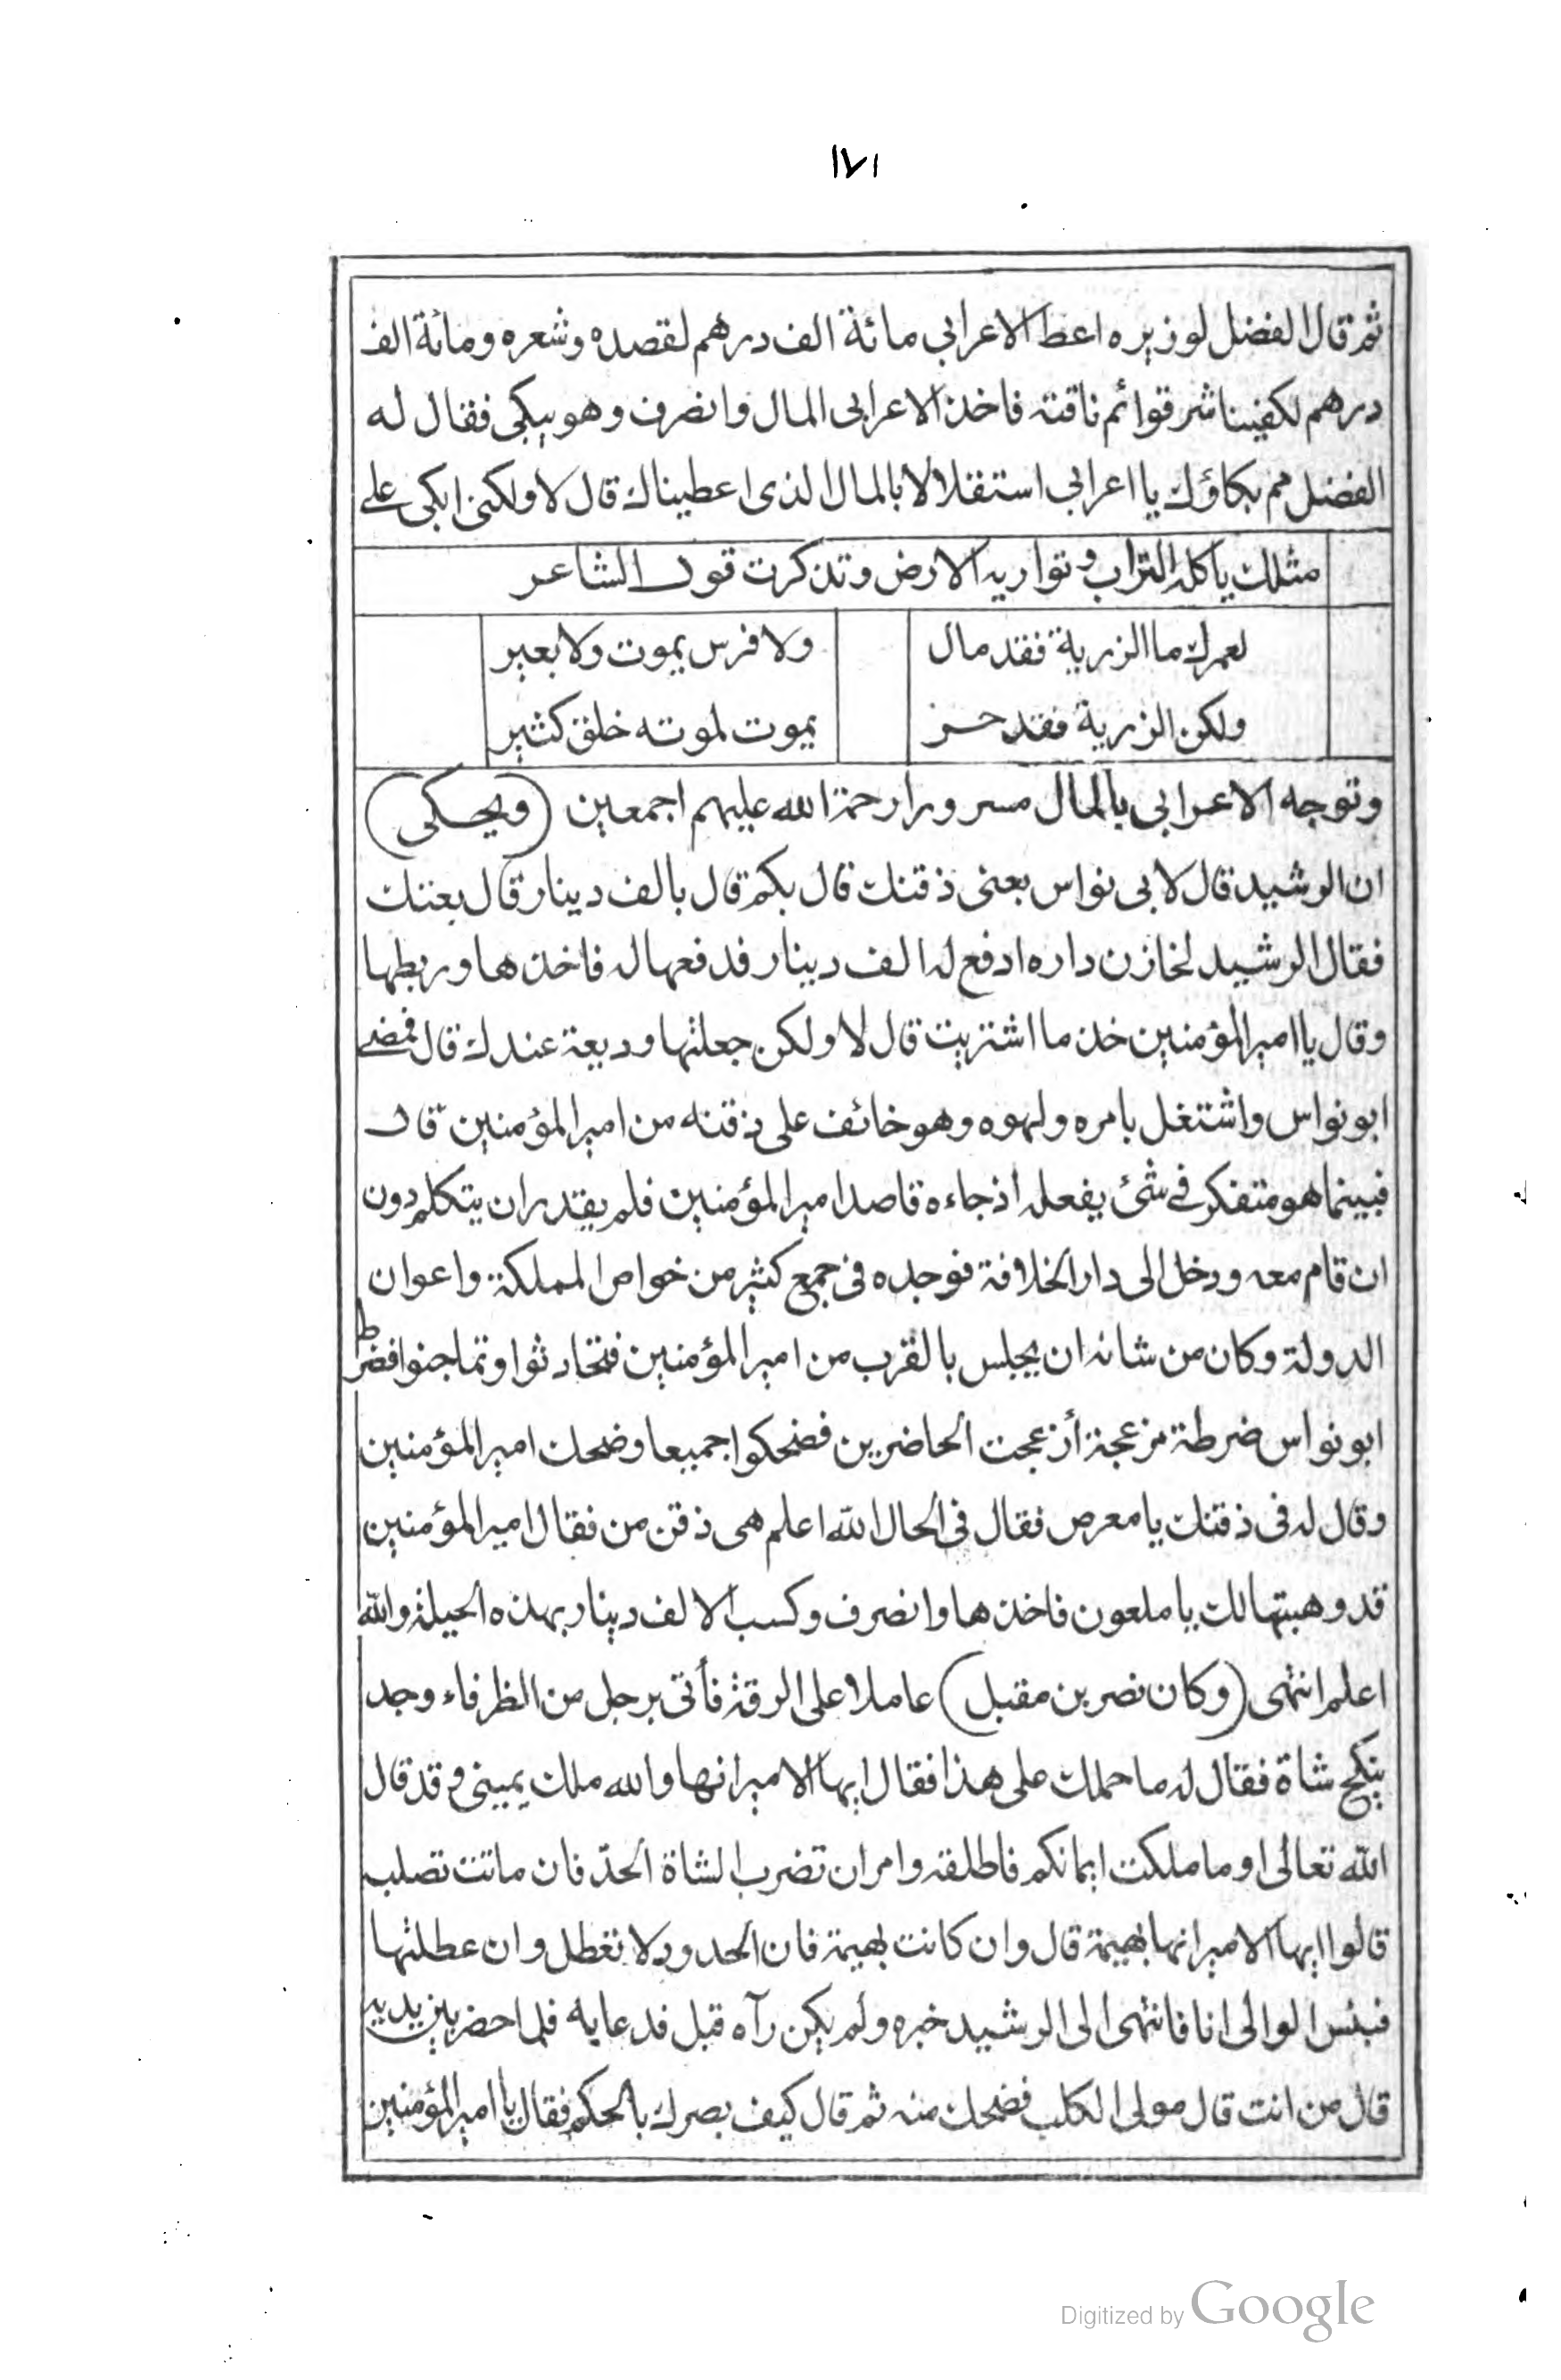 ١٧١
ثم قال الفضل لوزيره اعط الاعرابي مائة الف درهم لقصده وشعره ومائة الف
درهم لكفيناشر قوائم ناقته فاخذ الاعرابى المال وانصرف وهو يبكى فقال له
الفضل مم بكاؤك يا اعرابي استقلالا بالمال الذى اعطيناك قال لا ولكنى ابكى على
مثلك يأكله التراب وتواريه الارض وتذكرت قول الشاعر
لعمرك ما الرزية فقد مال ولا فرس يموت ولا بعير
ولكن الرزية فقد حر يموت لموته خلق كثير
وتوجه الاعرابى بالمال مسرورا رحمة الله عليهم اجمعين (ويحكى)
ان الرشيد قال لابى نواس بعنى ذقنك قال بكم قال بالف دينار قال بعتك
فقال الرشيد لخازن داره ادفع له الف دينار فدفعها له فاخذها وربطها
وقال يا امير المؤمنين خذ ما اشتريت قال لا ولكن جعلتها وديعة عندك قال فمضى
ابو نواس واشتغل بامره ولهوه وهو خائف على ذقنه من امير المؤمنين قال
فبينما هو متفكر فى شئ يفعله اذ جاءه قاصد امير المؤمنين فلم يقدر ان يتكلم دون
ان قام معه ودخل الى دار الخلافة فوجده فى جمع كثير من خواص المملكة واعوان
الدولة وكان من شانه ان يجلس بالقرب من امير المؤمنين فتحادثوا وتماجنوا فضرط
ابو نواس ضرطة مزعجة أزعجت الحاضرين فضحكوا جميعا وضحك امير المؤمنين
وقال له فى ذقنك يا معرص فقال فى الحال الله اعلم هى ذقن من فقال امير المؤمنين
قد وهبتها لك يا ملعون فاخذها وانصرف وكسب الالف دينار بهذه الحيلة والله
اعلم انتهى (وكان نصر بن مقبل) عاملا على الرقة فأتى برجل من الظرفاء وجد
ينكح شاة فقال له ما حملك على هذا فقال ايها الامير انها والله ملك يمينى وقد قال
الله تعالى او ما ملكت ايمانكم فاطلقه وامر ان تضرب الشاة الحدّ فان ماتت تصلب
قالوا ايها الامير انها بهيمة قال وان كانت بهيمة فان الحدود لا تعطل وان عطلتها
فبئس الوالى انا فانتهى الى الرشيد خبره ولم يكن رآه قبل فدعا به فلما احضر بين يديه
قال من انت قال مولى الكلب فضحك منه ثم قال كيف بصرك بالحكم فقال يا امير المؤمنين
Digitized by Google